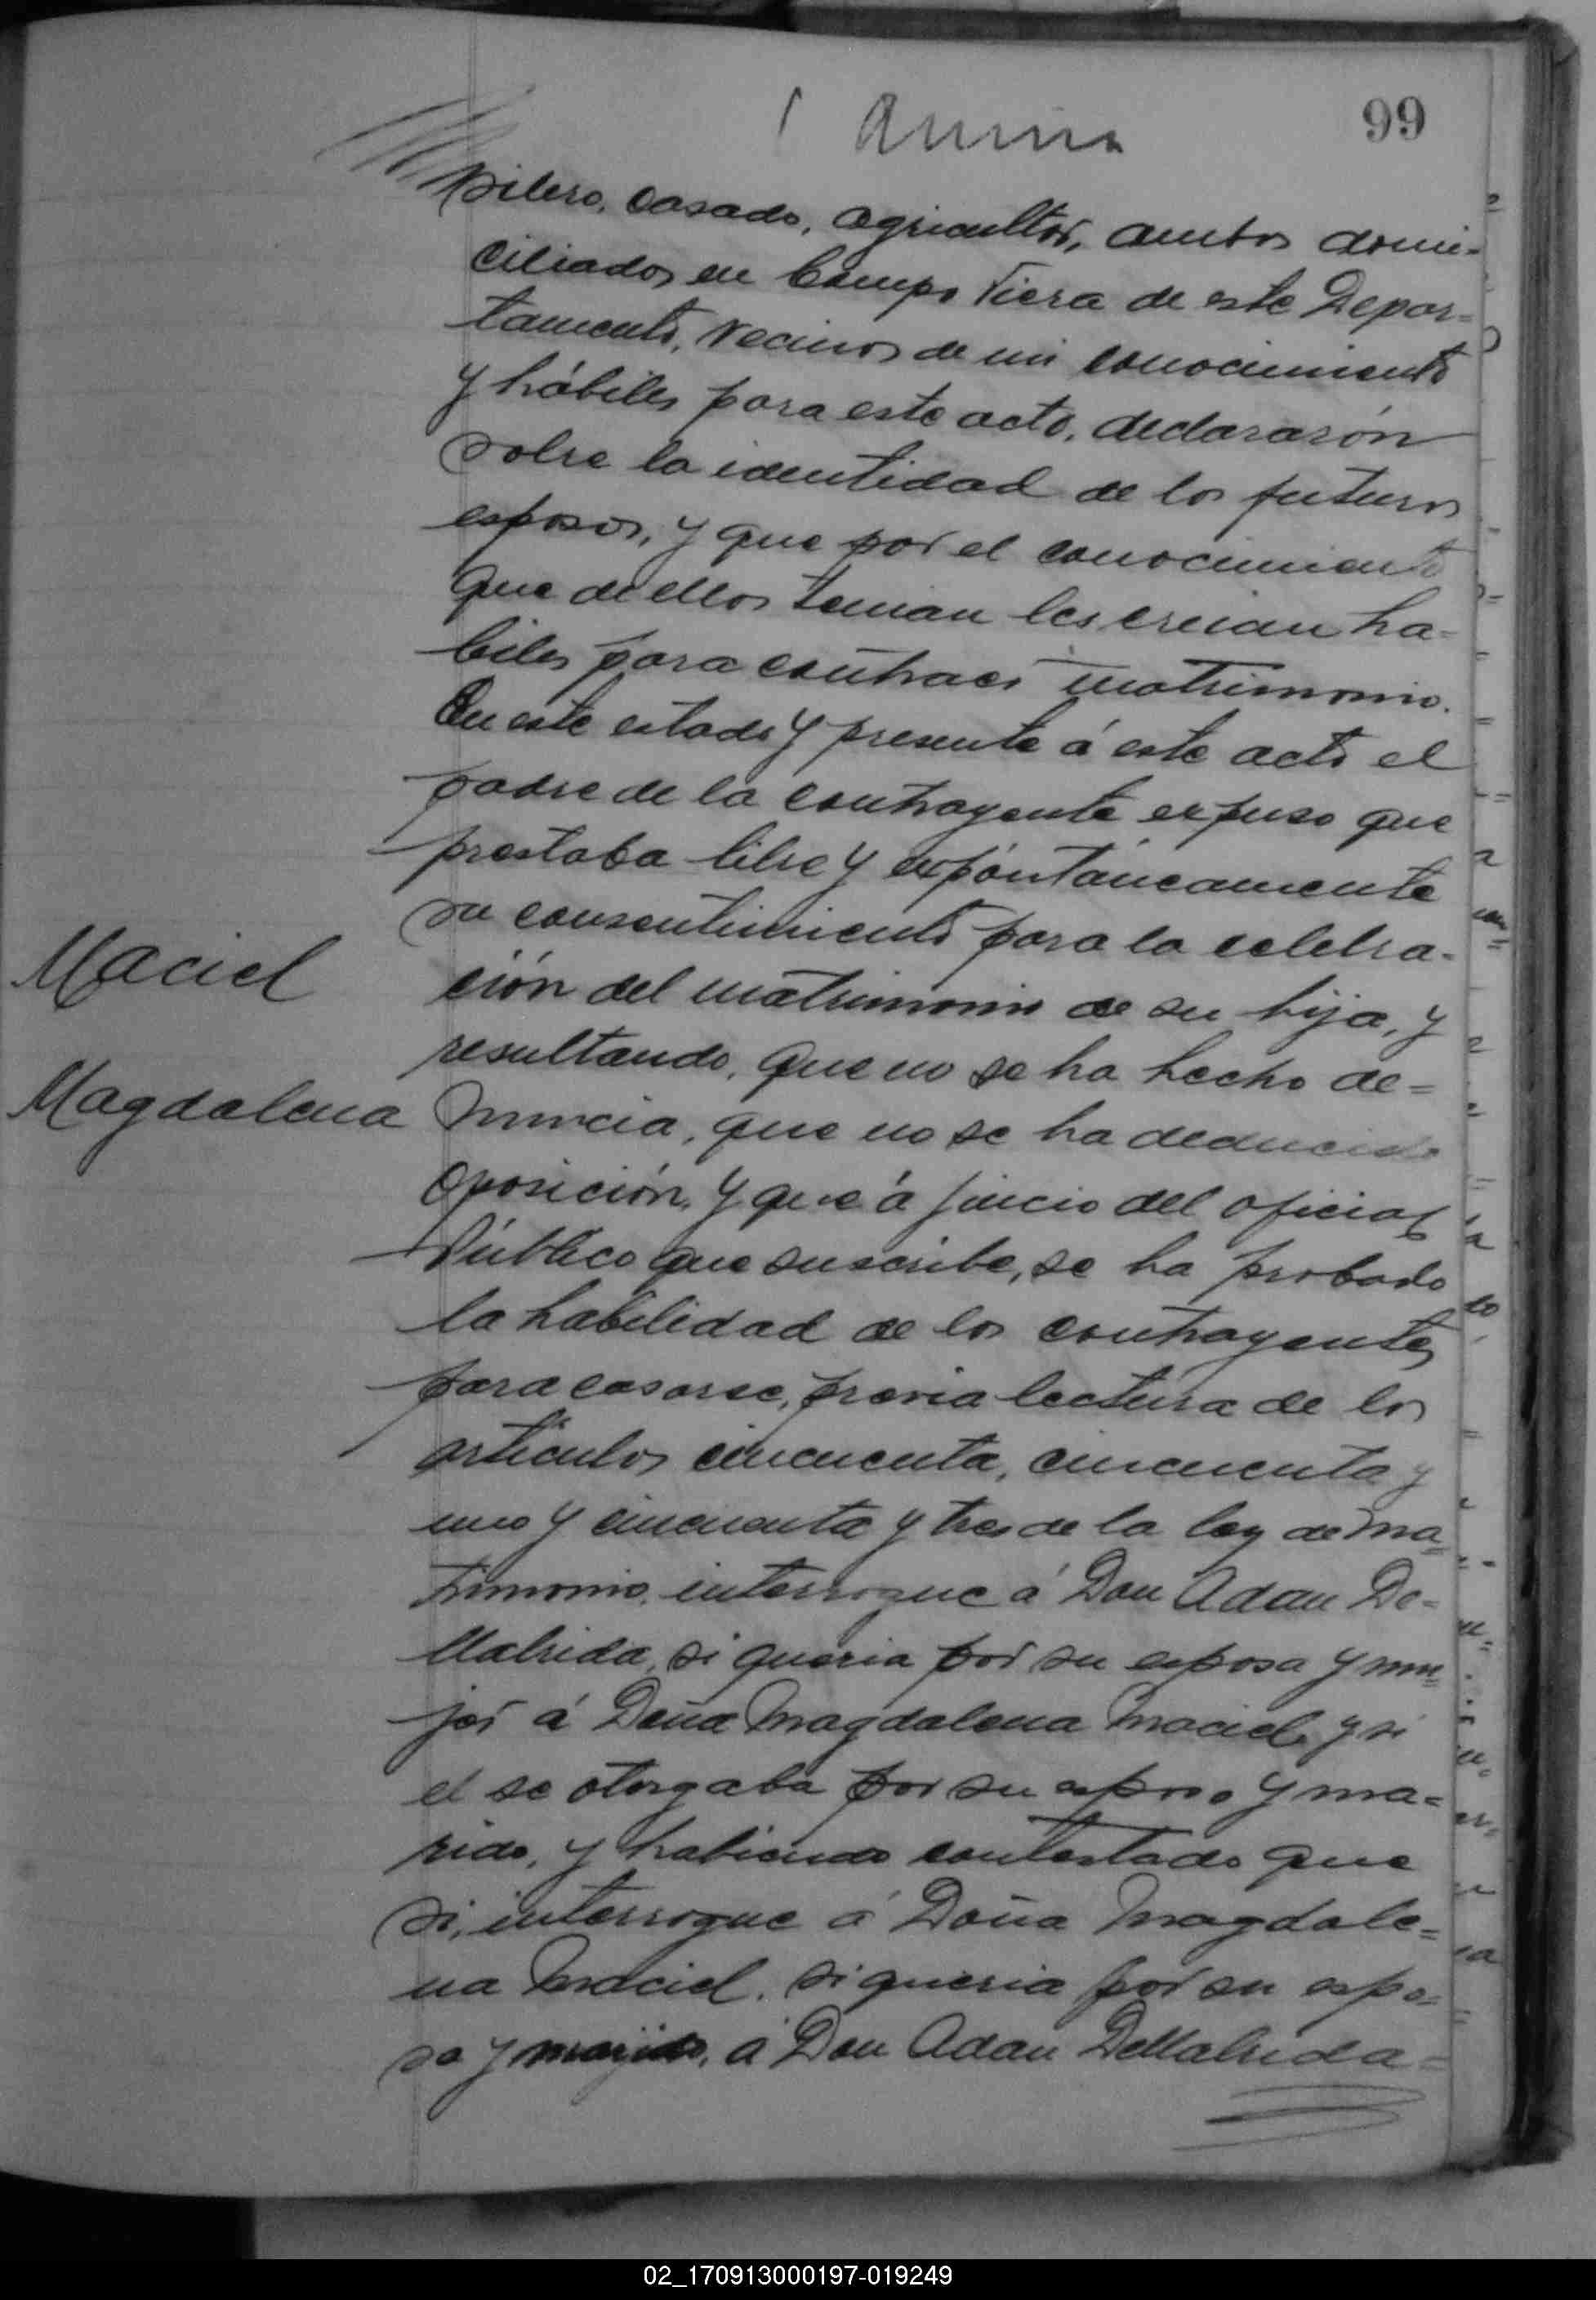 99
silero, casado, agricultor, ambos domi-
ciliados en Campo Viera de este Depar=
tamento, vecinos de mi conocimiento
y hábiles para este acto, declararón
sobre la identidad de los futuros
esposos, y que por el conocimiento
que de ellos tenian les creian ha=
biles para contraer matrimonio.
En este estado y presente á este acto el
padre de la contrayente expuso que
prestaba libre y expóntáneamente
su consentimiento para la celebra-
ción del matrimonio de su hija, y
Maciel
resultando, que no se ha hecho de=
Magdalena
nuncia, que no se ha deducido
oposición, y que á juicio del oficial
Público que suscribe, se ha probado
la habilidad de los contrayentes
para casarse, previa lectura de los
artículos cincuenta, cincuenta y
uno y cincuenta y tres de la ley de ma=
trimonio, interrogue á Don Adan De=
llabrida, si queria por su esposa y mu=
jer á Doña Magdalena Maciel, y si
el se otorgaba por su esposo y ma=
rido, y habiendo contestado que
si, interrogue á Doña Magdale=
na Maciel, si queria por su espo=
so y marido, á Don Adan Dellabrida=
02_170913000197-019249